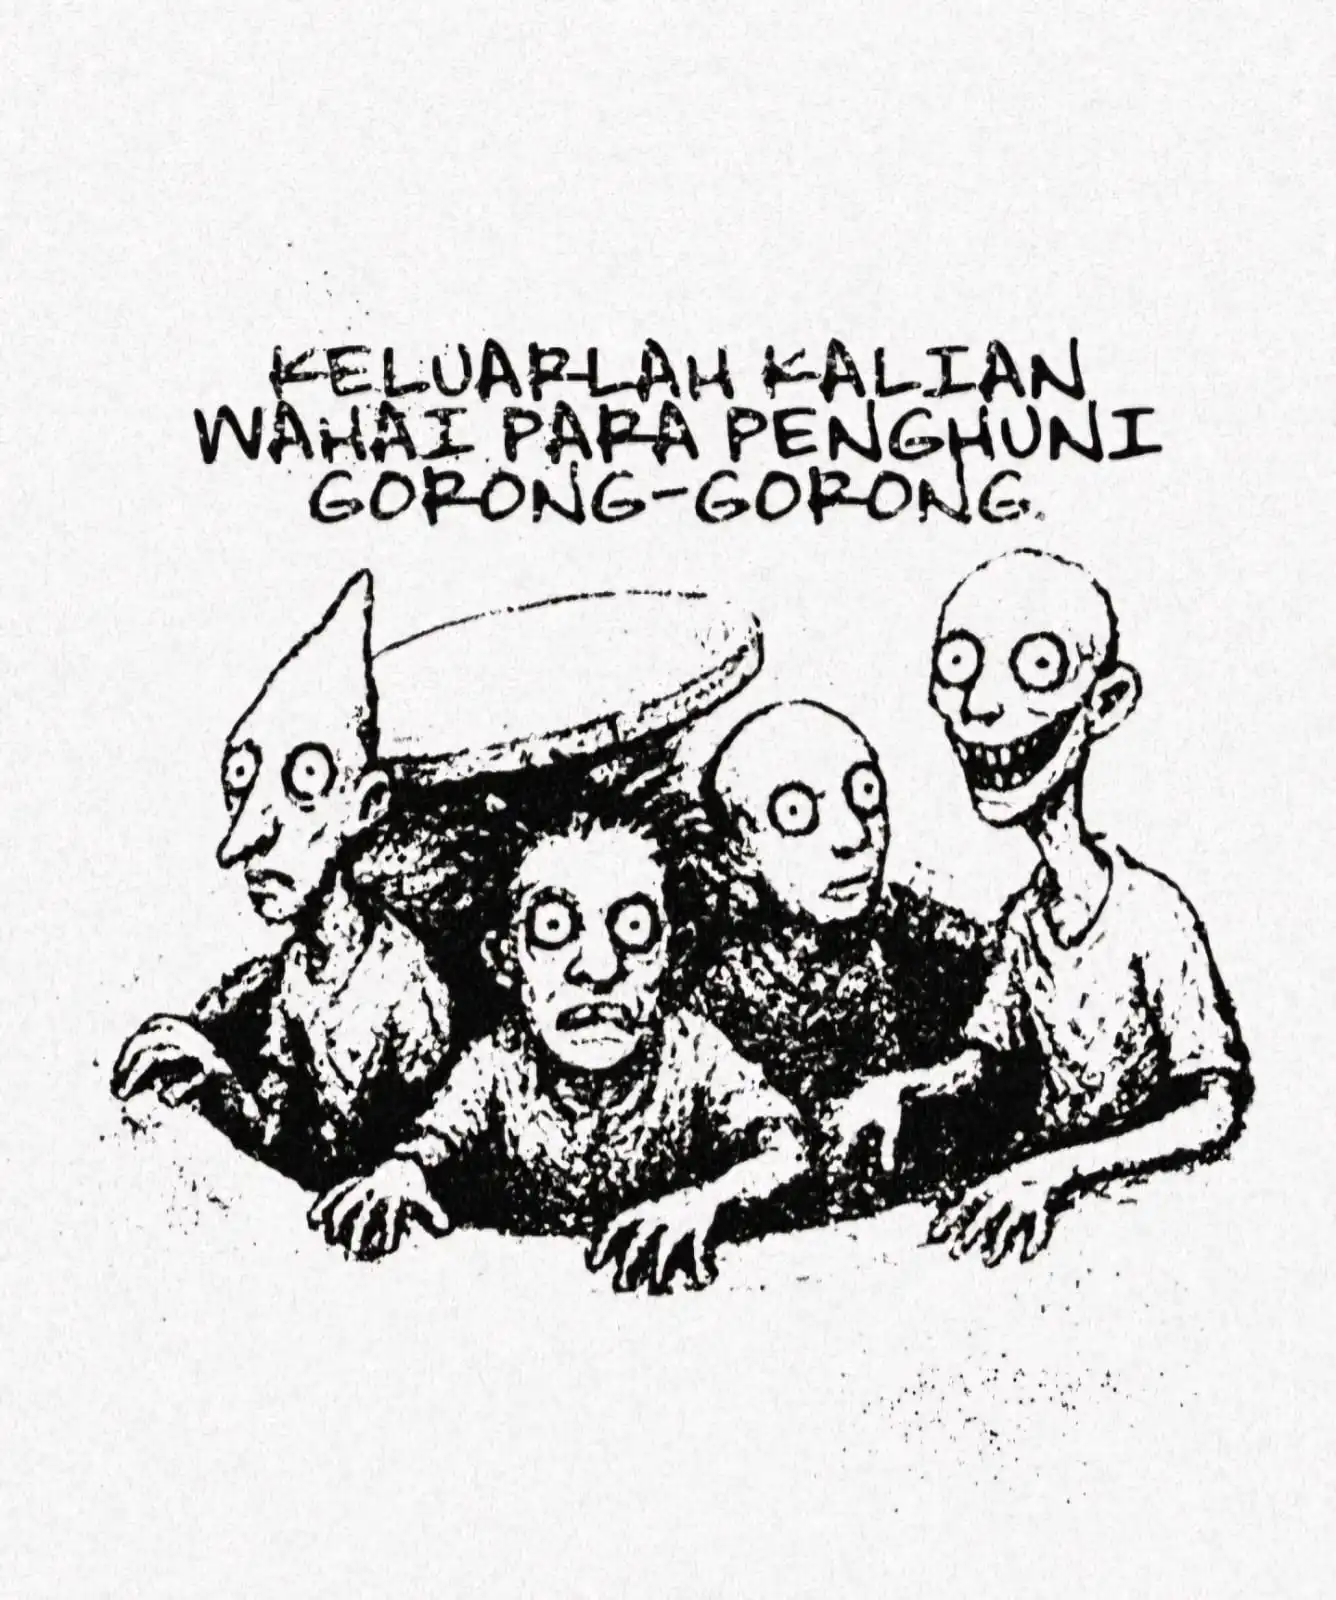 KELUARLAH KALIAN
WAHAI PARA PENGHUNI
GORONG-GORONG.